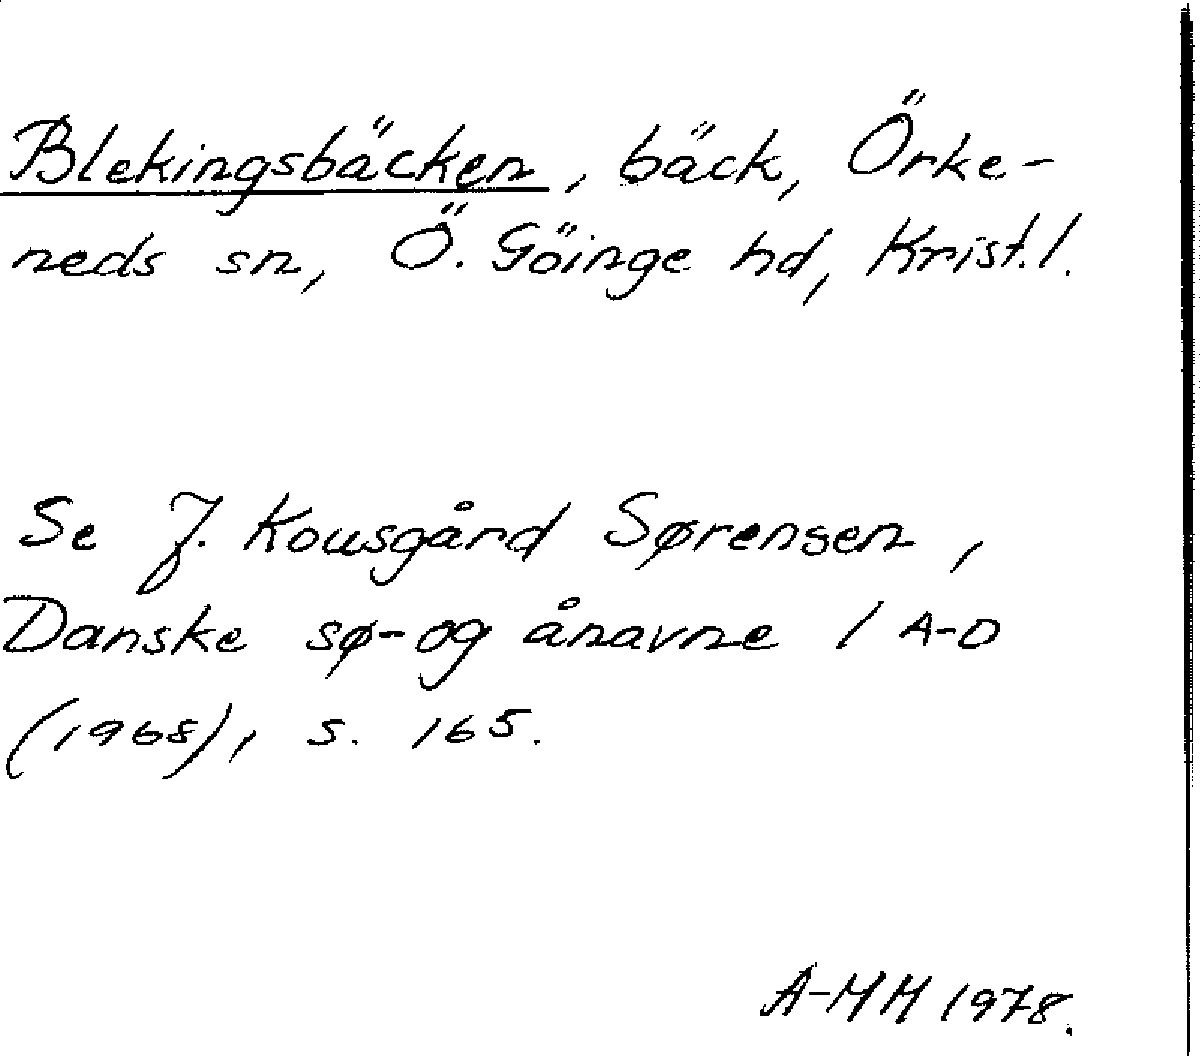 Blekingsbäcken, bäck, Örke-
neds sn, Ö. Göinge hd, Krist. l.
Se J. Kousgård Sørensen,
Danske sø- og ånavne 1 A-D
(1968), s. 165.
A-MM 1978.